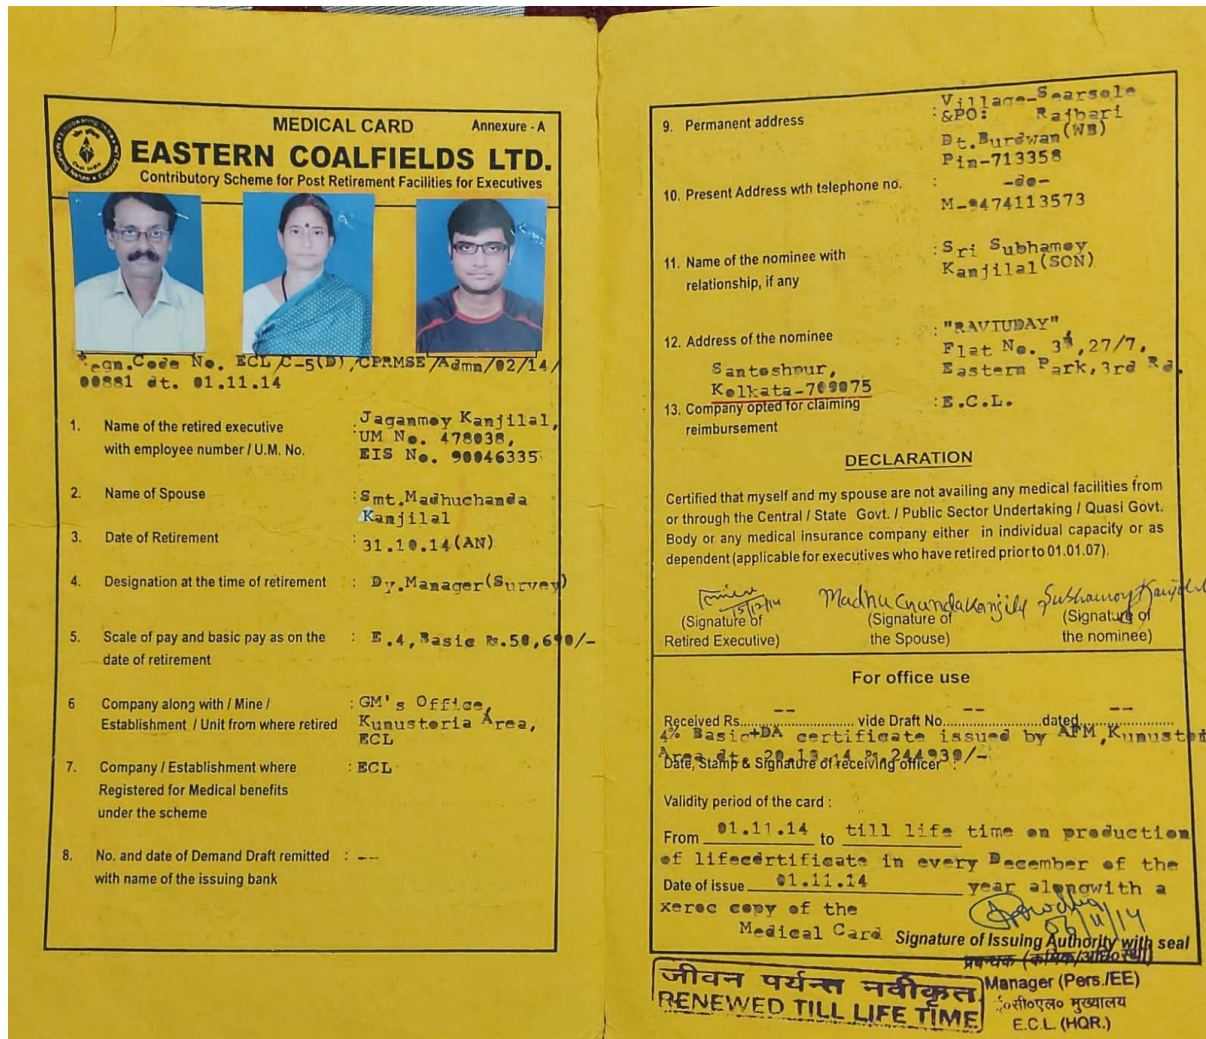 MEDICAL CARD Annexure - A
EASTERN COALFIELDS LTD.
Contributory Scheme for Post Retirement Facilities for Executives
Regn.Code No. ECL/C-5(D)/CPRMSE/Admn/02/14/
00881 dt. 01.11.14
1. Name of the retired executive : Jaganmoy Kanjilal,
with employee number / U.M. No. UM No. 478038,
EIS No. 90046335
2. Name of Spouse : Smt.Madhuchanda
Kanjilal
3. Date of Retirement : 31.10.14(AN)
4. Designation at the time of retirement : Dy.Manager(Survey)
5. Scale of pay and basic pay as on the : E.4,Basic Rs.50,690/-
date of retirement
6 Company along with / Mine / : GM's Office,
Establishment / Unit from where retired Kunustoria Area,
ECL
7. Company / Establishment where : ECL
Registered for Medical benefits
under the scheme
8. No. and date of Demand Draft remitted : --
with name of the issuing bank
9. Permanent address : Village-Searsole
&PO: Rajbari
Dt.Burdwan(WB)
Pin-713358
10. Present Address wth telephone no. : -do-
M-9474113573
11. Name of the nominee with : Sri Subhamoy
relationship, if any Kanjilal(SON)
12. Address of the nominee : "RAVIUDAY"
Flat No. 3A,27/7,
Santoshpur, Eastern Park,3rd Rd.
Kolkata-700075
13. Company opted for claiming : E.C.L.
reimbursement
DECLARATION
Certified that myself and my spouse are not availing any medical facilities from
or through the Central / State Govt. / Public Sector Undertaking / Quasi Govt.
Body or any medical insurance company either in individual capacity or as
dependent (applicable for executives who have retired prior to 01.01.07).
15/12/14 Madhuchanda Kanjilal Subhamoy Kanjilal
(Signature of (Signature of (Signature of
Retired Executive) the Spouse) the nominee)
For office use
Received Rs. -- vide Draft No. -- dated --
4% Basic+DA certificate issued by AFM,Kunust
Area dt. Rs.244939/-
Date, Stamp & Signature of receiving officer :
Validity period of the card :
From 01.11.14 to till life time on production
of lifecertificate in every December of the
Date of issue 01.11.14 year alongwith a
xeroc copy of the
Medical Card Signature of Issuing Authority with seal
जीवन पर्यन्त नवीकृत Manager (Pers./EE)
RENEWED TILL LIFE TIME मुख्यालय
E.C.L. (HQR.)